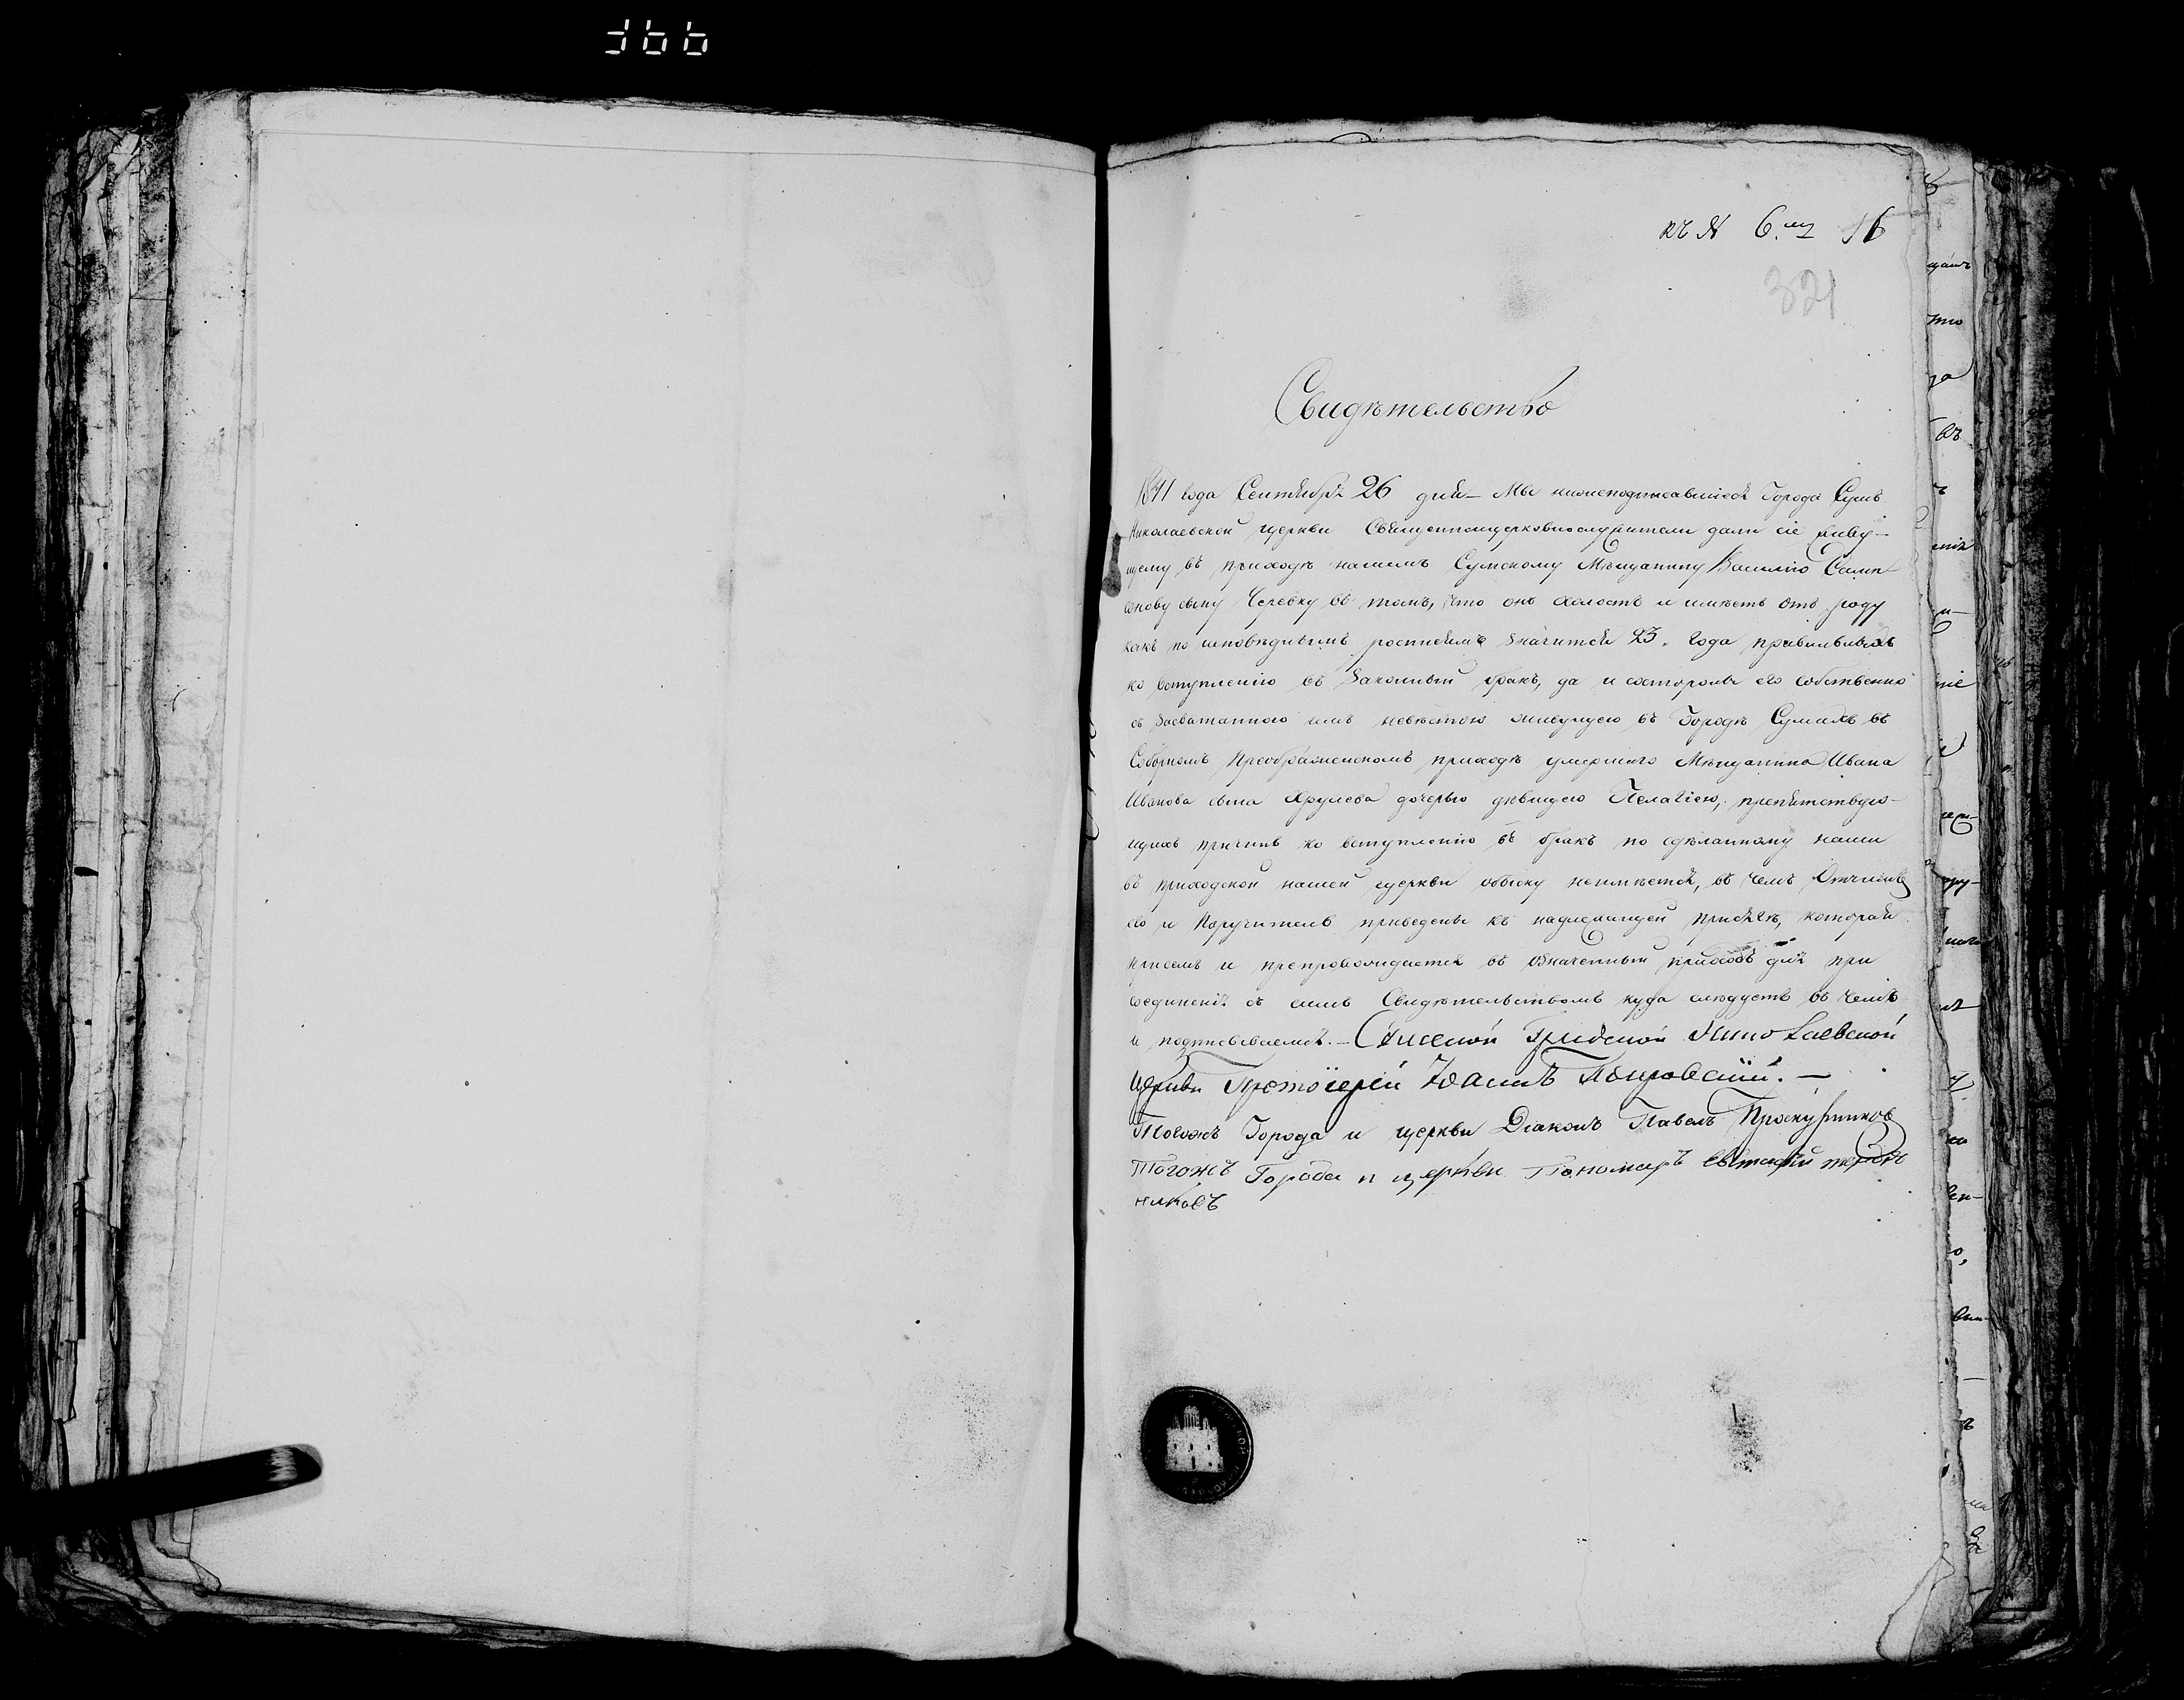 къ № 6.му 16
321
Свидѣтельство
1841 года Сентября 26 дня — Мы нижеподписавшіеся Города Сумъ
Николаевской церкви Священноцерковнослужители дали сіе живу-
щему въ приходѣ нашемъ Сумскому Мѣщанину Василію Самп-
сонову сыну Черевку въ томъ, что онъ холостъ и имѣетъ отъ роду
какъ по исповѣднымъ росписямъ значится 23. года
ко вступленію въ законный бракъ, да и состороны его собственно
съ засватанною имъ невѣстою живущею въ Городѣ Сумахъ въ
Соборномъ Преображенскомъ приходѣ умершаго Мѣщанина Ивана
Иванова сына Хрулева дочерью дѣвицею Пелагіею, препятствую-
щихъ причинъ ко вступленію въ бракъ по сдѣланному нами
въ приходской нашей церкви обыску неимѣется, въ чемъ
его и Поручители приведены къ надлежащей присягѣ, которая
присемъ и препровождается въ означенный приходъ для при
соединенія съ симъ Свидѣтельствомъ куда слѣдуетъ въ чемъ
и подписываемся. — Сумской Градской Николаевской
Церкви Протоіерей Іоаннъ —
Тогожъ Города и церкви Діаконъ Павелъ
Тогожъ Города и церкви Пономарь Евстафій
никовъ